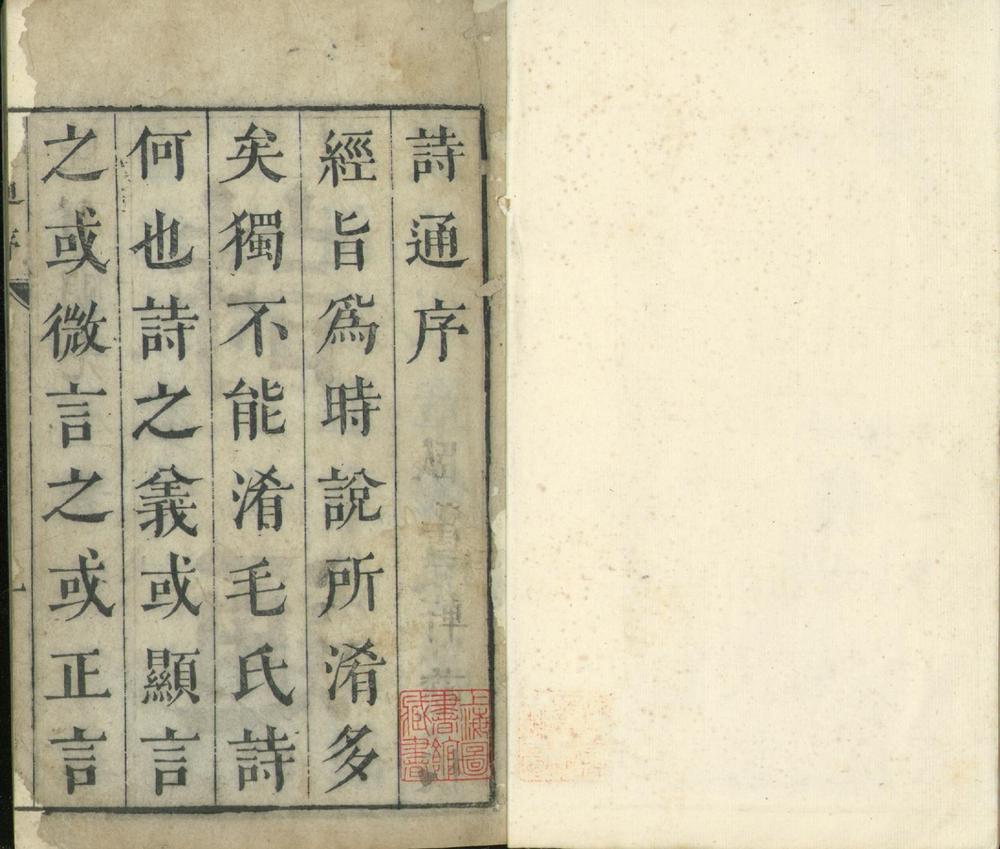 詩通序
經旨爲時說所淆多
矣獨不能淆毛氏詩
何也詩之義或顯言
之或微言之或正言
上海圖書館藏書